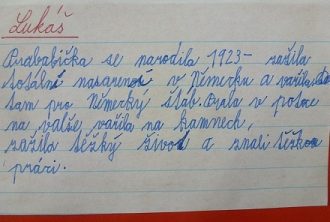 Lukáš
Prababička se narodila 1923 - zažila
totálně nasazenost v Německu a vařila
tam pro Německý štáb. Brala v potoce
na valše vařila na kamnech,
zažila těžký život a znali těžkou
práci.